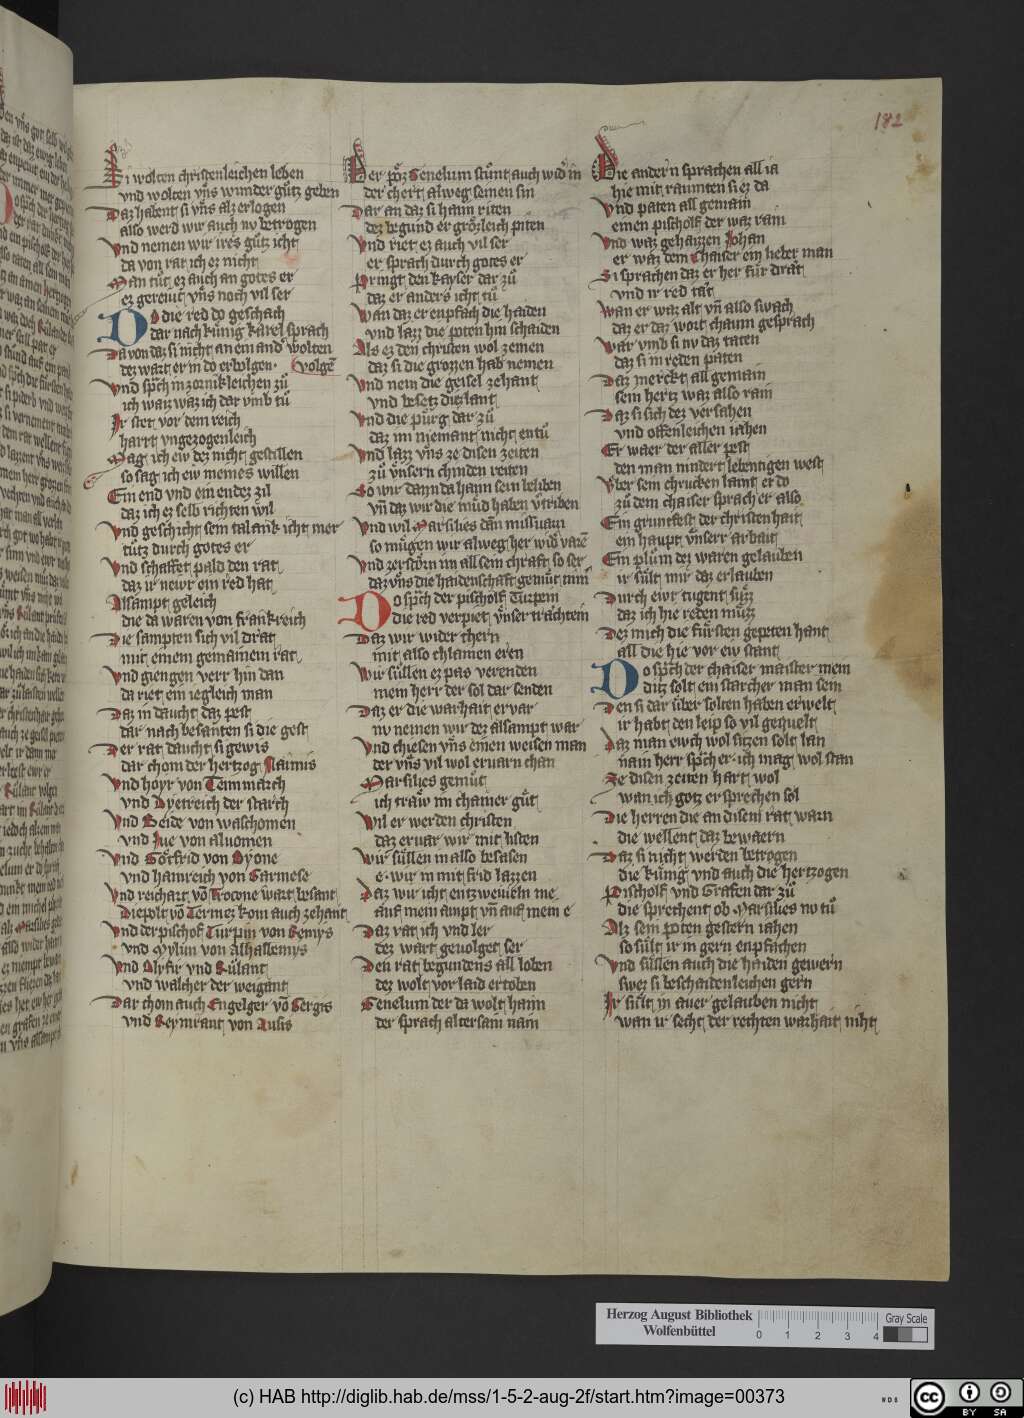 182
Si wolten christenleichen leben
vnd wolten vns wunder gůtz geben
Daz habent si vns alz erlogen
also werd wir auch nv betrogen
Vnd nemen wir ires gůtz icht
da von rat ich ez nicht
Man tůt ez auch an gotes er
ez gerewt vns noch vil ser
Do die red do geschach
dar nach kůnig karel sprach
Da von daz si nicht an ein and' wolten
dez wart er in do erbolgen. volge
Vnd spch in zornikleichen zů
ich waiz waz ich dar vmb tů
Ir stet vor dem reich
hartt vngezogenleich
Mag ich ew dez nicht gestillen
so sag ich ew meines willen
Ein end vnd ein endez zil
daz ich ez selb richten wil
Vnd geschicht sein talank icht mer
tůtz durch gotes er
Vnd schaffet pald den rat
daz ir newr ein red hat
Allsampt geleich
die da waren von frankreich
Die sampten sich vil drat
mit einem gemainem rat
Vnd giengen verr hin dan
da riet ein iegleich man
Daz in daucht daz pest
dar nach besanten si die gest
Der rat daucht si gewis
dar chom der hertzog Naimis
Vnd hoyr von Tenmarch
vnd Dyetreich der starch
Vnd Beide von waschonien
vnd Iue von aluomen
Vnd Gotfrid von Dyone
vnd hainreich von Garmese
Vnd reichart võ Trotone wart besant
Diepolt võ Termez kom auch zehant
Vnd der pischof Turpin von Remys
vnd Mylun von alhallemys
Vnd Olyfir vnd Růlant
vnd walcher der weigant
Dar chom auch Engelger võ Sergis
vnd Bermrant von Aulis
Her pōz Genelum stůnt auch wid' in
der chert alweg seinen sin
Dar an daz si hann riten
dez begund er grözleich piten
Vnd riet ez auch vil ser
er sprach durch gotes er
Pringt den kayser dar zů
daz er anders icht tů
Wan daz er enpfach die haiden
vnd lazz die poten hin schaiden
Als ez den christen wol zemen
daz si die grozzen hab nemen
Vnd nem die geisel zehant
vnd besetz ditzlant
Vnd die půrg dar zů
daz im niemant nicht entů
Vnd lazz vns ze disen zeiten
zů vnsern chinden reiten
So wir dann da hann sein beliben
vn̄ daz wir die můd haben v'triben
Vnd wil Marsilies dan missuarn
so můgen wir alweg her wid' varē
Vnd zerstörn im all sein chraft so ser
daz vns die haidenschaft gemůt nim'
Do spch der pischolf Turpein
die red verpiet vnser trachtein
Daz wir wider chern
mit also chlainen eren
Wir sůllen ez pas verenden
mein herr der sol dar senden
Daz er die warhait ervar
nv nemen wir dez allsampt war
Vnd chiesen vns einen weisen man
der vns vil wol ervarn chan
Marsilies gemůt
ich traw im chainer gůt
Wil er werden christen
daz ervar wir mit listen
Wir sůllen in also besasen
e. wir in mit frid lazzen
Daz wir icht entzweiueln me
auf mein ampt vn̄ auf mein e
Daz rat ich vnd ler
dez wart geuolget ser
Den rat begundens all loben
dez wolt vor laid ertoben
Genelum der da wolt hann
der sprach altersam nain
Die ander'n sprachen all ia
hie mit raumten si ez da
Vnd paten all gemain
einen pischolf der waz rain
Vnd waz gehaizzen Johan
er waz dem Chaiser ein lieber man
Si sprachen daz er her fůr drat
vnd ir red tät
Wan er waz alt vn̄ also swach
daz er daz wort chaum gesprach
War vmb si nv daz taten
daz si in reden paten
Daz merckt all gemain
sein hertz waz also rain
Daz si sich dez versahen
vnd offenleichen iahen
Er waer der aller pest
den man nindert lebentigen west
Vber sein chrucken lamt er do
zů dem chaiser sprach er also
Ein gruntfest der christenhait
ein haupt vnser arbait
Ein plům dez waren gelauben
ir sůlt mir daz erlauben
Durch ewr tugent sůzz
daz ich hie reden můzz
Dez mich die fůrsten gepeten hant
all die hie vor ew stant
Do spch der chaiser maister mein
ditz solt ein starcher man sein
Den si dar ůber solten haben erwelt
ir habt den leip so vil gequelt
Daz man ewch wol sitzen solt lan
nain herr spch er. ich mag wol stan
Ze disen zeiten hart wol
wan ich gotz ersprechen sol
Die herren die an disem rat warn
die wellent daz bewaern
Daz si nicht werden betrogen
die kůnig vnd auch die hertzogen
Pischolf vnd Grafen dar zů
die sprechent ob Marsilies nv tů
Alz sein poten gestern iahen
so sůlt ir in gern enpfachen
Vnd sůllen auch die haiden gewern
swez si beschaidenleichen gern
Ir sůlt in auer gelauben nicht
wan ir secht der rechten warhait niht
Herzog August Bibliothek
Wolfenbüttel
0 1 2 3 4
Gray Scale
(c) HAB http://diglib.hab.de/mss/1-5-2-aug-2f/start.htm?image=00373
WDB
cc
BY SA